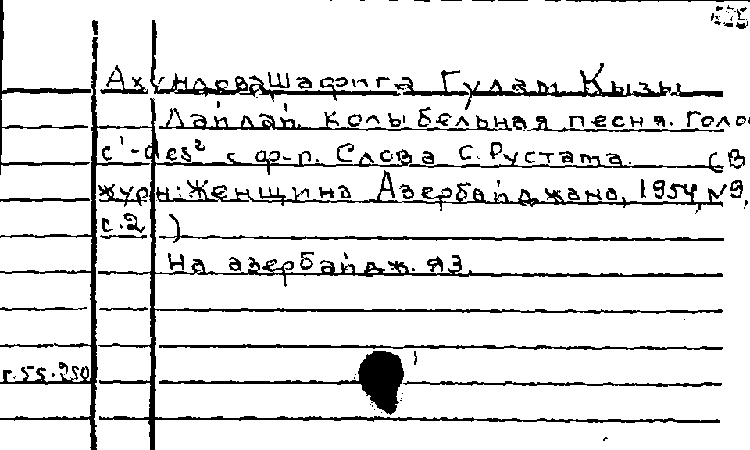 Ахундова Шафига Гулам Кызы
Лайлай. Колыбельная песня. Голо
c¹-des² с ф-п. Слова С. Рустама. (В
журн: Женщина Азербайджана, 1954, №9,
с.2 )
На азербайдж. яз.
г.55-250